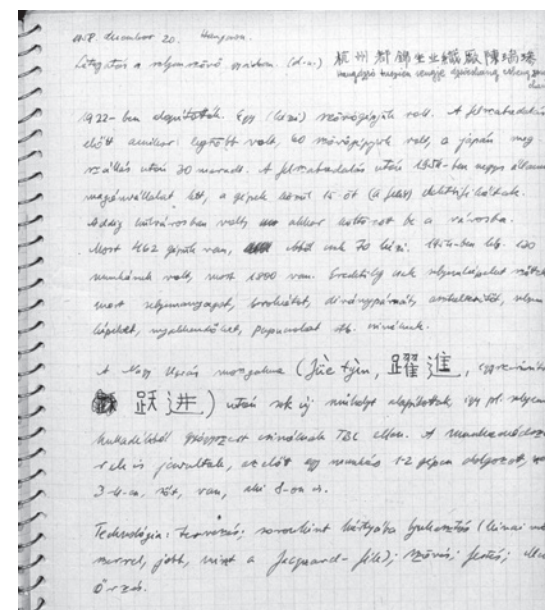 1958. december 20. Hangzhou.
Látogatás a selyemszövő gyárban. (d.u.) 杭州都錦生丝織厰陳瑞
1922-ben alapították. Egy (kézi) szövőgépük volt. A felszabadulás
előtt amikor legtöbb volt, 60 szövőgépük volt, a japán meg-
szállás után 30 maradt. A felszabadulás után 1954-ben vegyes állami
magánvállalat lett, a gépek közül 15-öt (a felét) elektrifikálták.
Addig külvárosban volt, akkor költözött be a városba.
Most 462 gépük van, ebből csak 70 kézi. 1954-ben kb. 130
munkásuk volt, most 1800 van. Eredetileg csak selyemképeket szőttek
most selyemanyagot, brokátot, díványpárnát, asztalterítőt, selyem
képeket, nyakkendőket, papucsokat stb. csinálnak.
A Nagy Ugrás mozgalma (Jüe tyin, 躍進,
跃进) után sok új műhelyt alapítottak, így pl. selyem
hulladékból gyógyszert csinálnak TBC ellen. A munkamódsze-
reken is javítottak, azelőtt egy munkás 1-2 gépen dolgozott,
3-4-en, sőt, van, aki 8-on is.
Technológia: tervezés; soronként kártyába lyukasztás (kínai
jobb, mint a Jacquard-féle); szövés; festés;
őrzés.